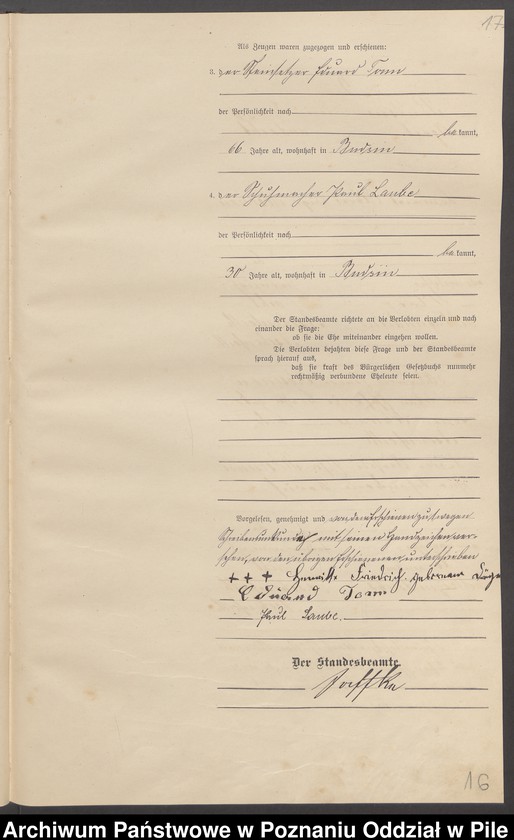 17.
Als Zeugen waren zugezogen und erschienen:
3. der Steinsetzer Eduard Tonn
der Persönlichkeit nach
be kannt,
66 Jahre alt, wohnhaft in Budsin
4. der Schuhmacher Paul Laube
der Persönlichkeit nach
be kannt,
30 Jahre alt, wohnhaft in Budsin
Der Standesbeamte richtete an die Verlobten einzeln und nach
einander die Frage:
ob sie die Ehe miteinander eingehen wollen.
Die Verlobten bejahten diese Frage und der Standesbeamte
sprach hierauf aus,
daß sie kraft des Bürgerlichen Gesetzbuchs nunmehr
rechtmäßig verbundene Eheleute seien.
Vorgelesen, genehmigt und von dem Erschienenen zu 1 wegen
Schreibensunkunde mit seinem Handzeichen ver-
sehen, von den übrigen Erschienenen unterschrieben
+ + + Friedrich geborenen
Eduard Tonn
Paul Laube.
Der Standesbeamte.
16
Archiwum Państwowe w Poznaniu Oddział w Pile